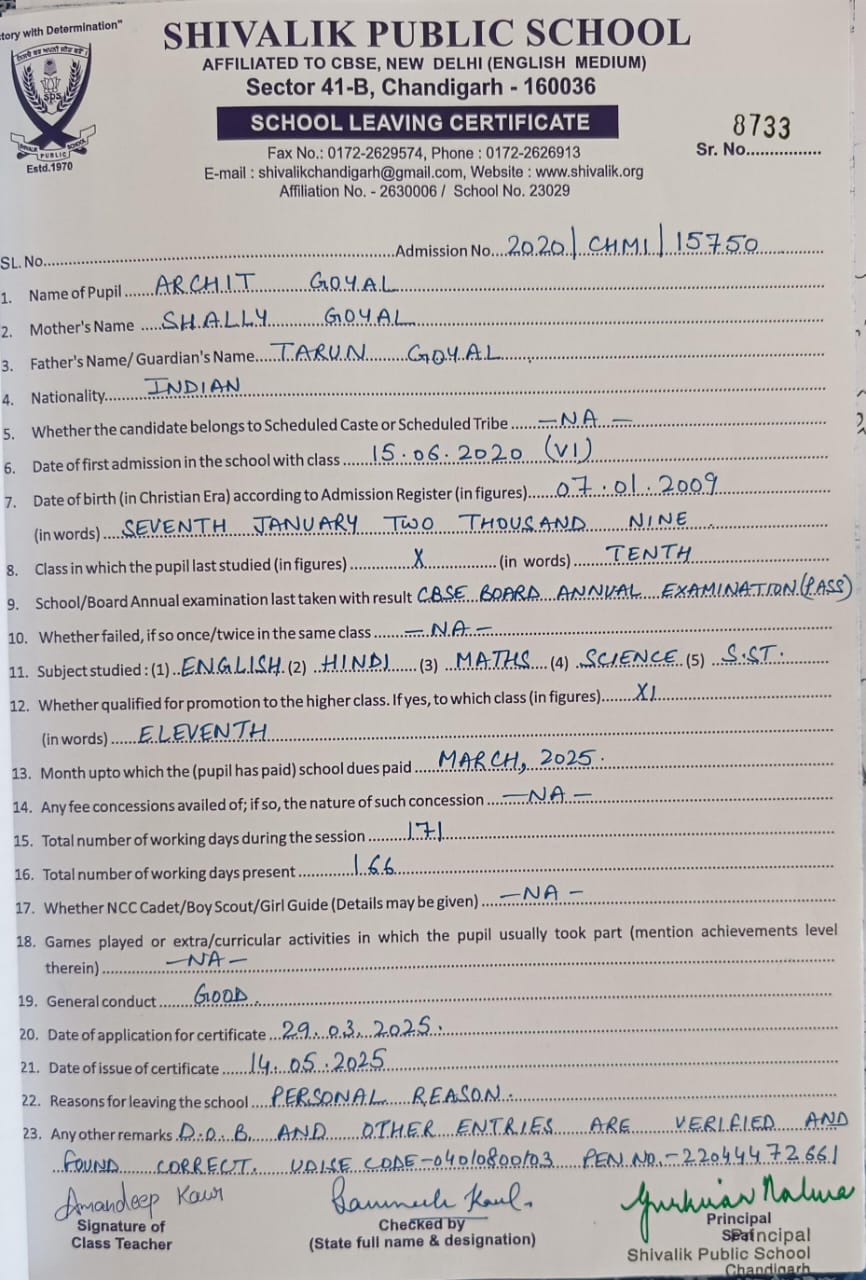 tory with Determination"
SHIVALIK PUBLIC SCHOOL
AFFILIATED TO CBSE, NEW DELHI (ENGLISH MEDIUM)
Sector 41-B, Chandigarh - 160036
SCHOOL LEAVING CERTIFICATE
8733
Sr. No................
Fax No.: 0172-2629574, Phone : 0172-2626913
E-mail : shivalikchandigarh@gmail.com, Website : www.shivalik.org
Affiliation No. - 2630006 / School No. 23029
SPS
SHIVALIK PUBLIC SCHOOL
Estd.1970
SL. No. Admission No. 2020/CHMI/15750
1. Name of Pupil ARCHIT GOYAL
2. Mother's Name SHALLY GOYAL
3. Father's Name/ Guardian's Name TARUN GOYAL
4. Nationality INDIAN
5. Whether the candidate belongs to Scheduled Caste or Scheduled Tribe -NA-
6. Date of first admission in the school with class 15.06.2020 (VI)
7. Date of birth (in Christian Era) according to Admission Register (in figures) 07.01.2009
(in words) SEVENTH JANUARY TWO THOUSAND NINE
8. Class in which the pupil last studied (in figures) X (in words) TENTH
9. School/Board Annual examination last taken with result CBSE BOARD ANNUAL EXAMINATION (PASS)
10. Whether failed, if so once/twice in the same class -NA-
11. Subject studied : (1) ENGLISH (2) HINDI (3) MATHS (4) SCIENCE (5) S.ST.
12. Whether qualified for promotion to the higher class. If yes, to which class (in figures) XI
(in words) ELEVENTH
13. Month upto which the (pupil has paid) school dues paid MARCH, 2025.
14. Any fee concessions availed of; if so, the nature of such concession -NA-
15. Total number of working days during the session 171
16. Total number of working days present 166
17. Whether NCC Cadet/Boy Scout/Girl Guide (Details may be given) -NA-
18. Games played or extra/curricular activities in which the pupil usually took part (mention achievements level
therein) -NA-
19. General conduct GOOD.
20. Date of application for certificate 29.03.2025.
21. Date of issue of certificate 14.05.2025
22. Reasons for leaving the school PERSONAL REASON.
23. Any other remarks D.O.B. AND OTHER ENTRIES ARE VERIFIED AND
FOUND CORRECT. UDISE CODE-04010800103 PEN NO.-22044472661
Amandeep Kaur
Signature of
Class Teacher
Checked by
(State full name & designation)
Principal
Seal
Principal
Shivalik Public School
Chandigarh